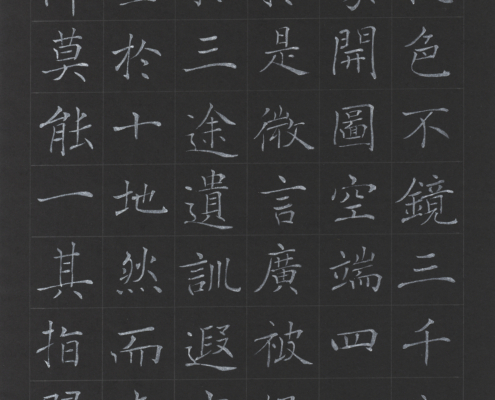 色不鏡三千
開圖空端四
是微言廣被
三途遺訓遐
於十地然而
莫能一其指